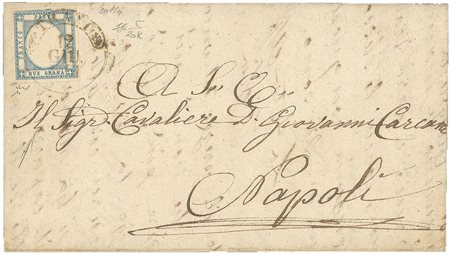 FRANCO
DUE GRANA
12
GIU
A S. E.
Il Sigr. Cavaliere D. Giovanni Carcan
Napoli